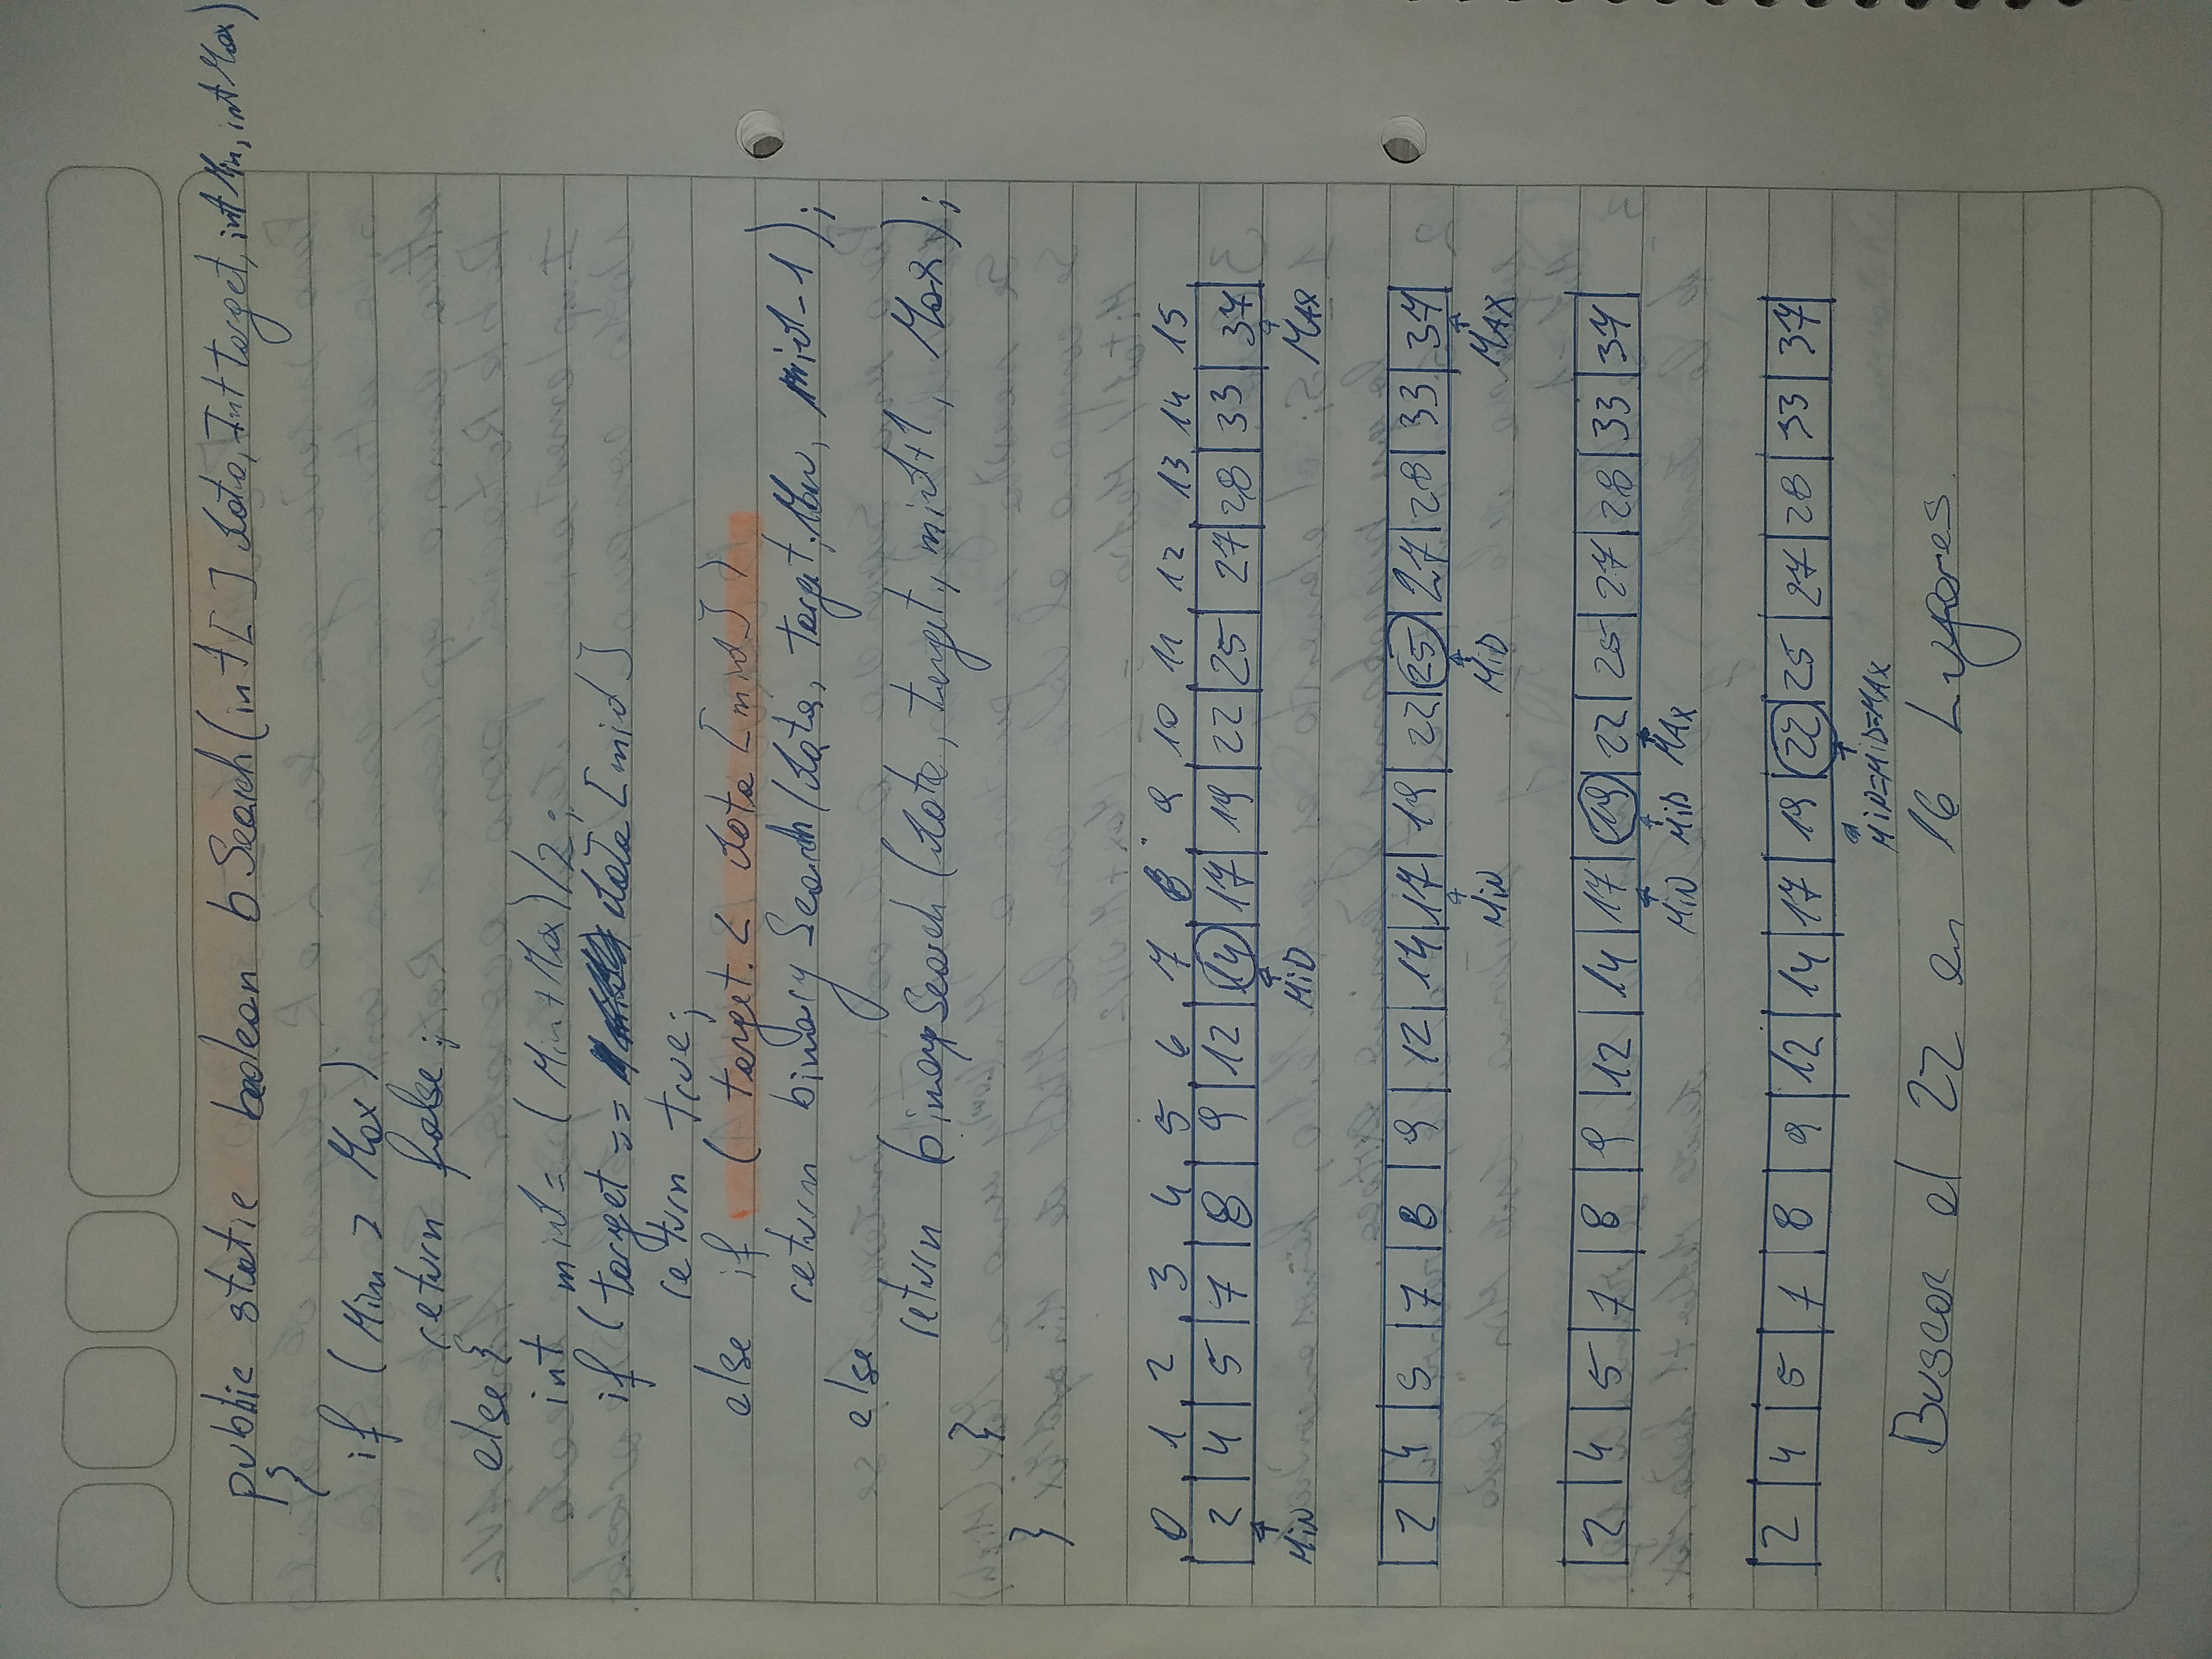 public static boolean bSearch(int[ ] data, Int target, int Min, int Max)
{
if (Min > Max)
return false;
else {
int mid = (Min + Max)/2;
if (target == data [mid]
return true;
else if ( target. < data [mid] )
return binary Search (data, target, mid-1);
else
return binary Search (data, target, mid+1, Max);
}
}
0 1 2 3 4 5 6 7 8 9 10 11 12 13 14 15
2 4 5 7 8 9 12 14 17 19 22 25 27 28 33 37
MiN MiD MAX
2 4 5 7 8 9 12 14 17 19 22 25 27 28 33 37
MiN MiD MAX
2 4 5 7 8 9 12 14 17 19 22 25 27 28 33 37
MiN MiD MAX
2 4 5 7 8 9 12 14 17 19 22 25 27 28 33 37
MiN=MiD=MAX
Buscar el 22 en 16 Lugares.